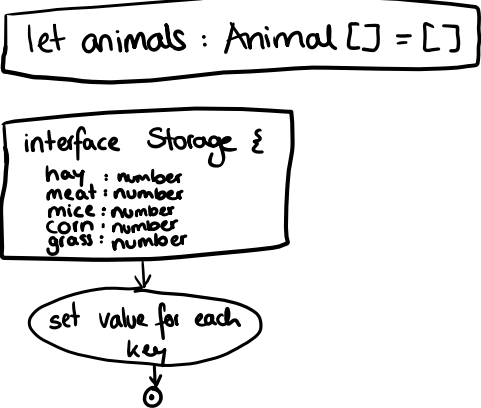 let animals : Animal [] = []
interface Storage {
hay : number
meat : number
mice : number
corn : number
grass : number
set value for each
key